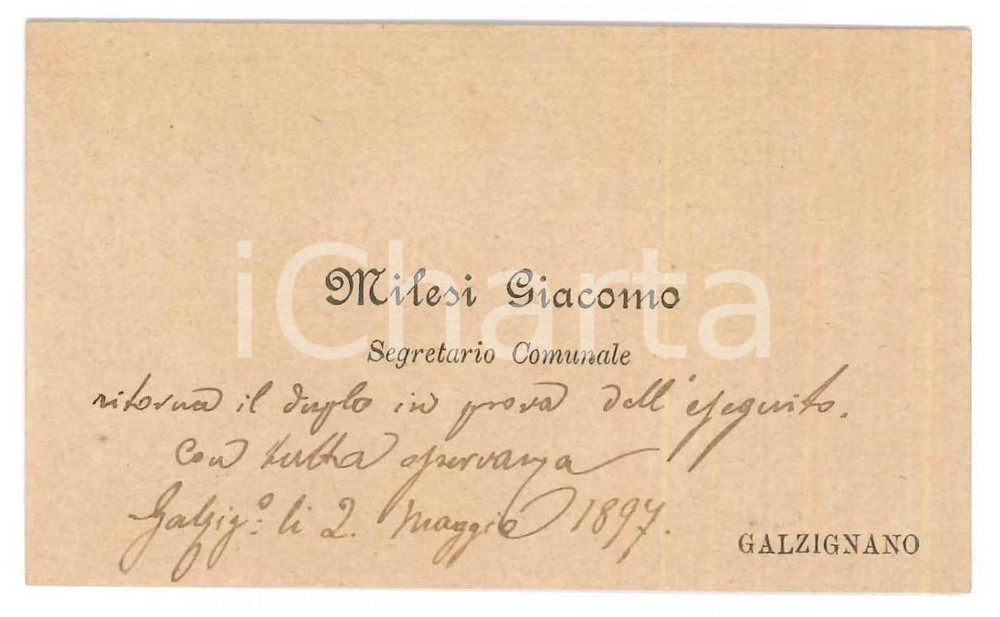 iCharta
Milesi Giacomo
Segretario Comunale
ritorna il duplo in prova dell'eseguito.
Con tutta osservanza
Galzig.º li 2. Maggio 1897.
GALZIGNANO